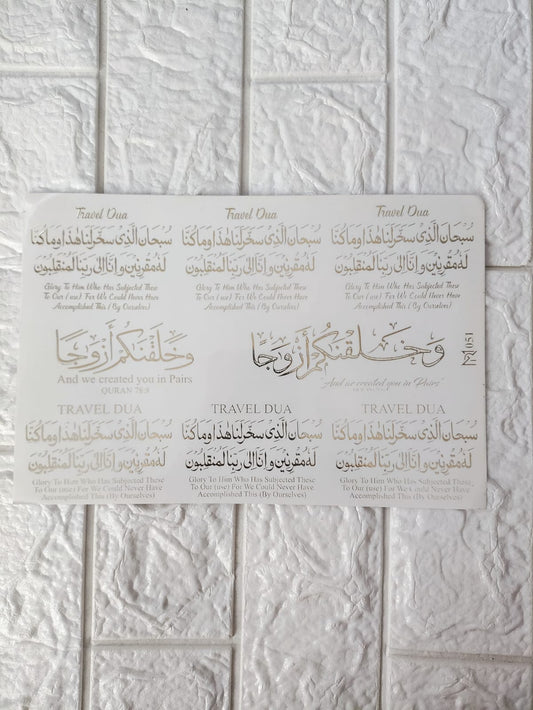 Travel Dua
سُبْحَانَ الَّذِي سَخَّرَ لَنَا هَذَا وَمَا كُنَّا
لَهُ مُقْرِنِينَ وَإِنَّا إِلَى رَبِّنَا لَمُنْقَلِبُونَ
Glory To Him Who Has Subjected These
To Our (use) For We Could Never Have
Accomplished This (By Ourselves)
Travel Dua
سُبْحَانَ الَّذِي سَخَّرَ لَنَا هَذَا وَمَا كُنَّا
لَهُ مُقْرِنِينَ وَإِنَّا إِلَى رَبِّنَا لَمُنْقَلِبُونَ
Glory To Him Who Has Subjected These
To Our (use) For We Could Never Have
Accomplished This (By Ourselves)
Travel Dua
سُبْحَانَ الَّذِي سَخَّرَ لَنَا هَذَا وَمَا كُنَّا
لَهُ مُقْرِنِينَ وَإِنَّا إِلَى رَبِّنَا لَمُنْقَلِبُونَ
Glory To Him Who Has Subjected These
To Our (use) For We Could Never Have
Accomplished This (By Ourselves)
وَخَلَقْنَكُمْ أَزْوَجًا
And we created you in Pairs
QURAN 78:8
وَخَلَقْنَكُمْ أَزْوَجًا
And we created you in Pairs
051
TRAVEL DUA
سُبْحَانَ الَّذِي سَخَّرَ لَنَا هَذَا وَمَا كُنَّا
لَهُ مُقْرِنِينَ وَإِنَّا إِلَى رَبِّنَا لَمُنْقَلِبُونَ
Glory To Him Who Has Subjected These
To Our (use) For We Could Never Have
Accomplished This (By Ourselves)
TRAVEL DUA
سُبْحَانَ الَّذِي سَخَّرَ لَنَا هَذَا وَمَا كُنَّا
لَهُ مُقْرِنِينَ وَإِنَّا إِلَى رَبِّنَا لَمُنْقَلِبُونَ
Glory To Him Who Has Subjected These
To Our (use) For We Could Never Have
Accomplished This (By Ourselves)
TRAVEL DUA
سُبْحَانَ الَّذِي سَخَّرَ لَنَا هَذَا وَمَا كُنَّا
لَهُ مُقْرِنِينَ وَإِنَّا إِلَى رَبِّنَا لَمُنْقَلِبُونَ
Glory To Him Who Has Subjected These
To Our (use) For We Could Never Have
Accomplished This (By Ourselves)